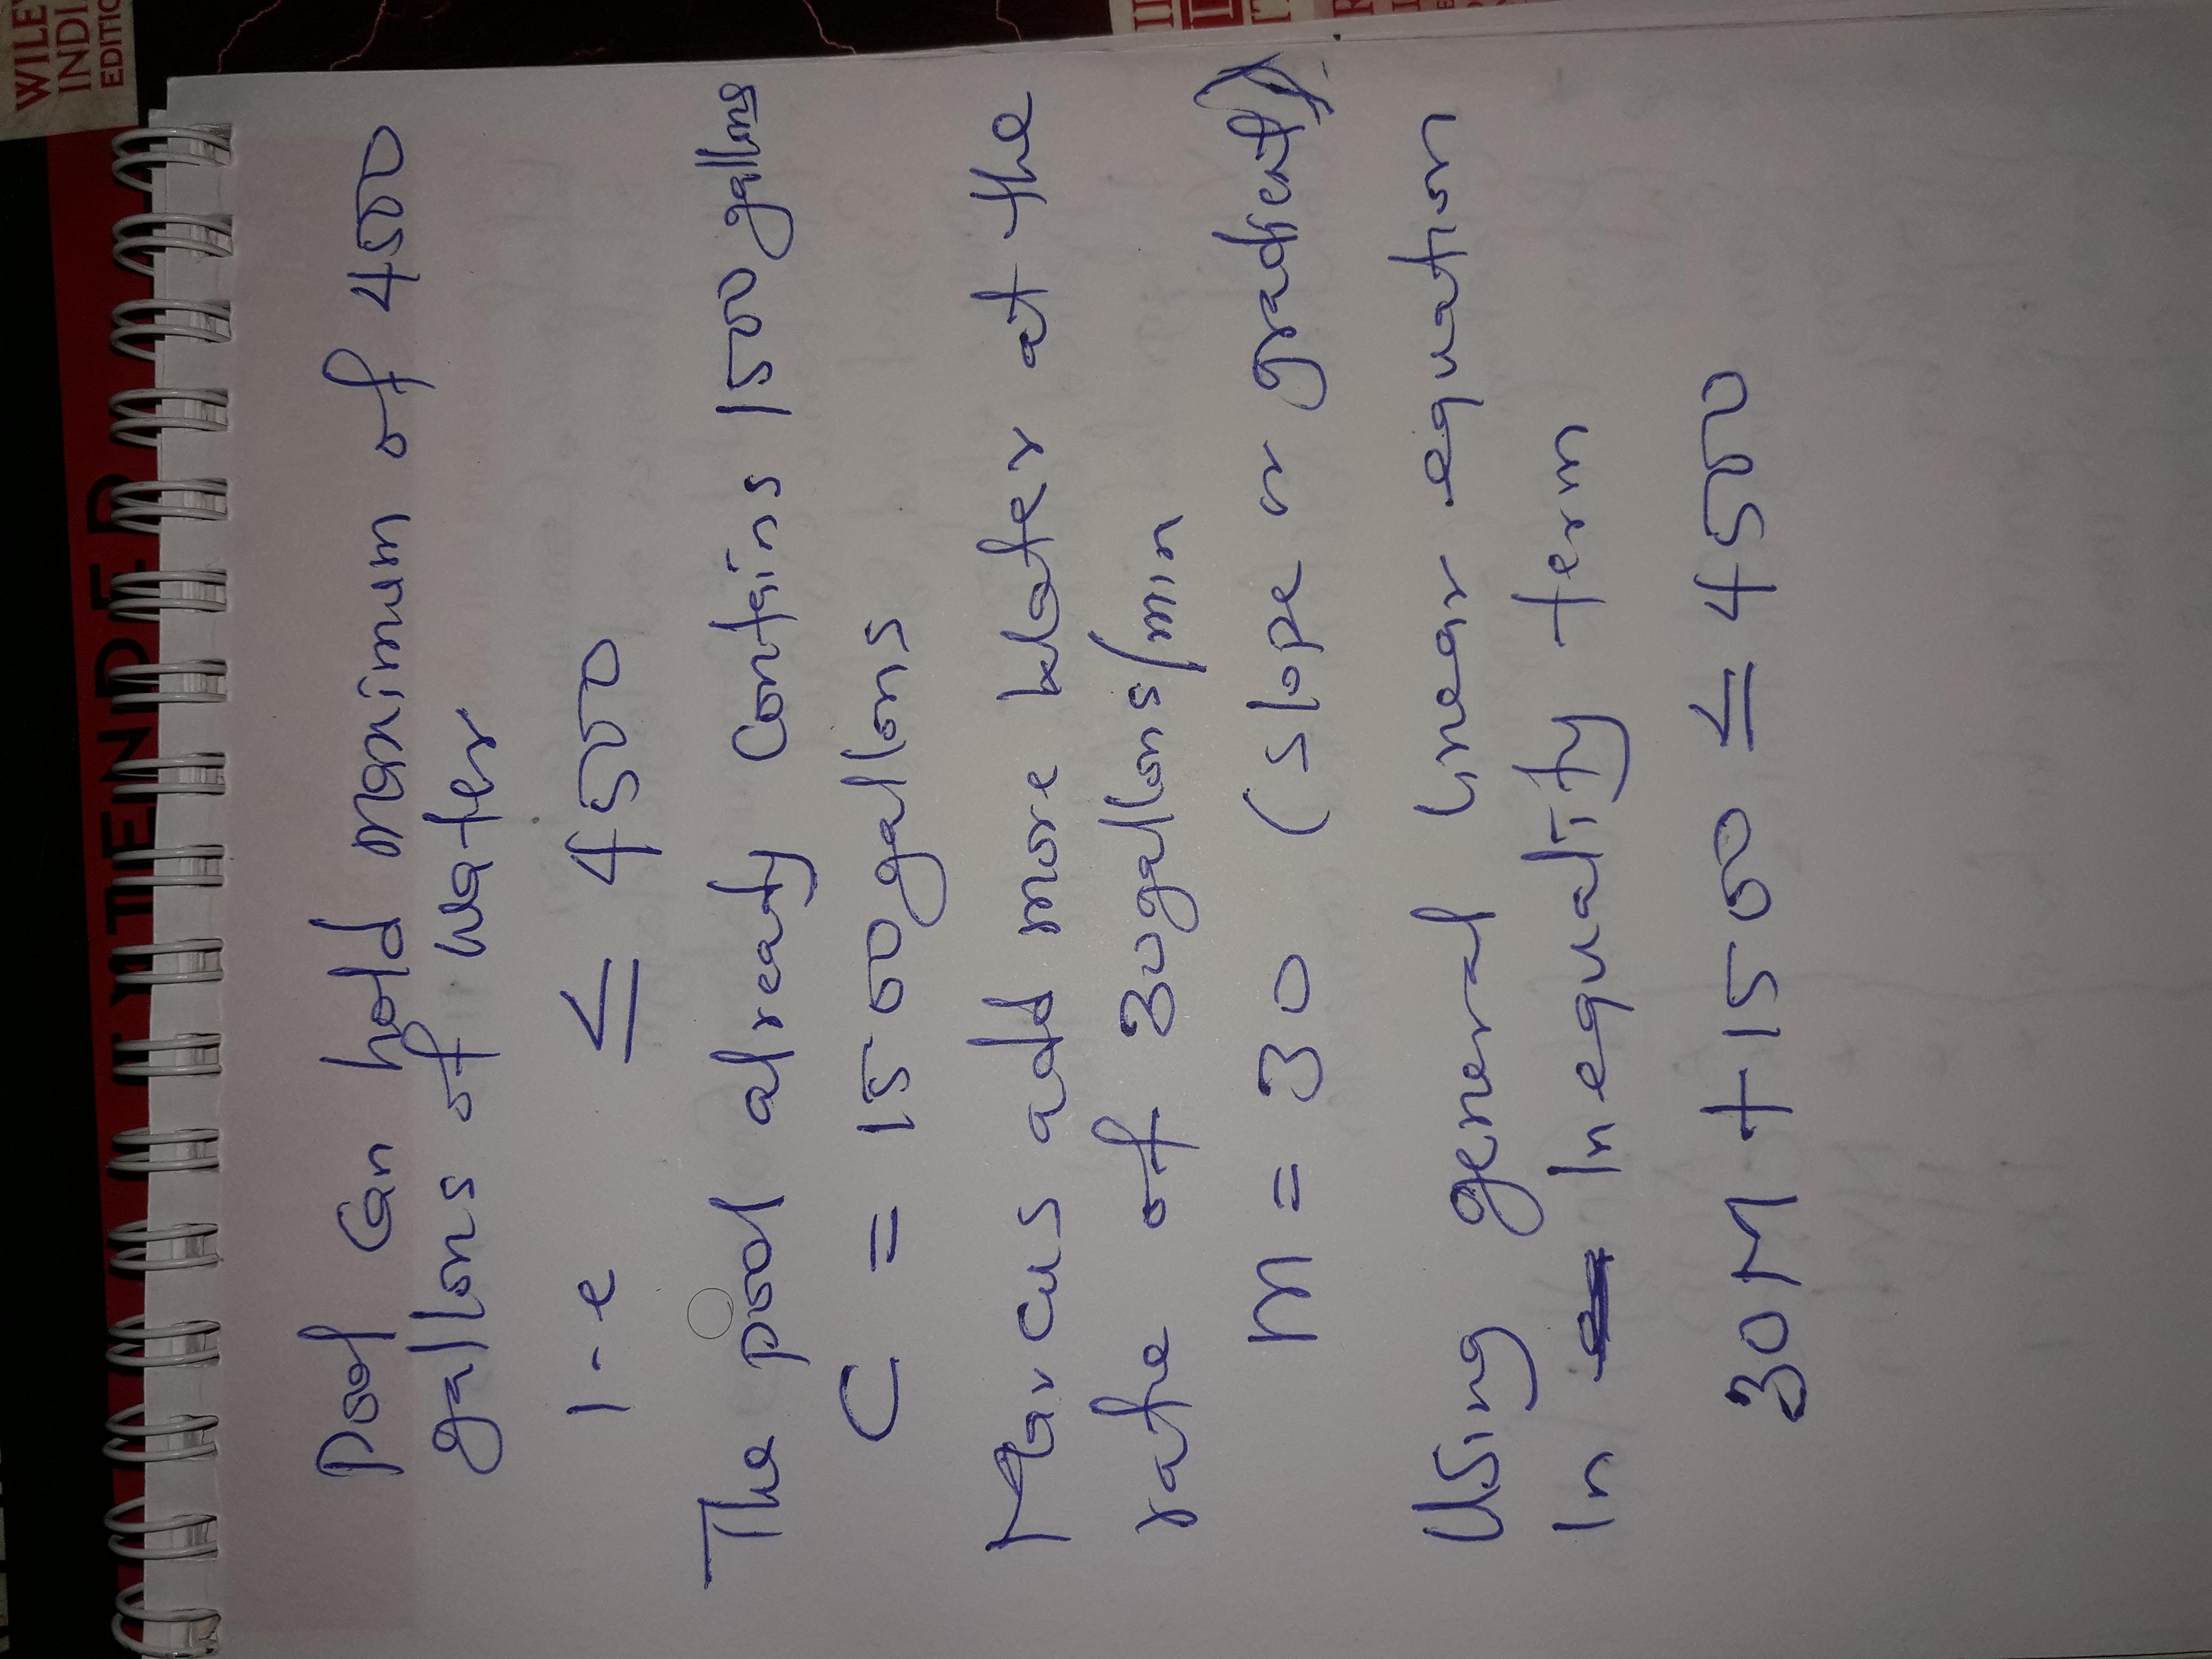 WILEY
INDIA
EDITION
Pool Can hold maximum of 4500
gallons of water
i-e ≤ 4500
The pool already contains 1500 gallons
C = 1500 gallons
Marcus add more water at the
rate of 30 gallons/min
m = 30 (slope or gradient)
Using general linear equation
In Inequality term
30M + 1500 ≤ 4500